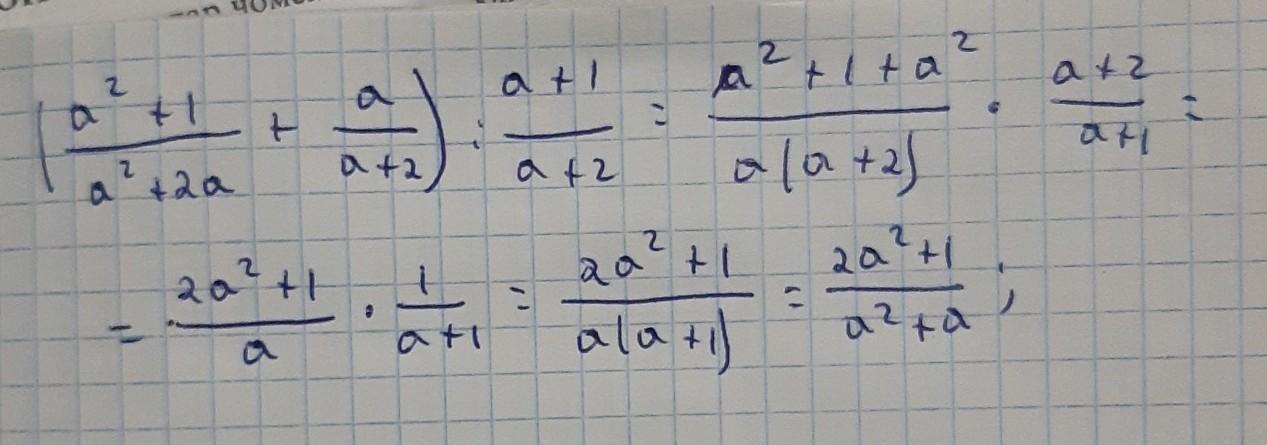 (a²+1/a²+2a + a/a+2) : a+1/a+2 = a²+1+a²/a(a+2) · a+2/a+1 =
= 2a²+1/a · 1/a+1 = 2a²+1/a(a+1) = 2a²+1/a²+a ;